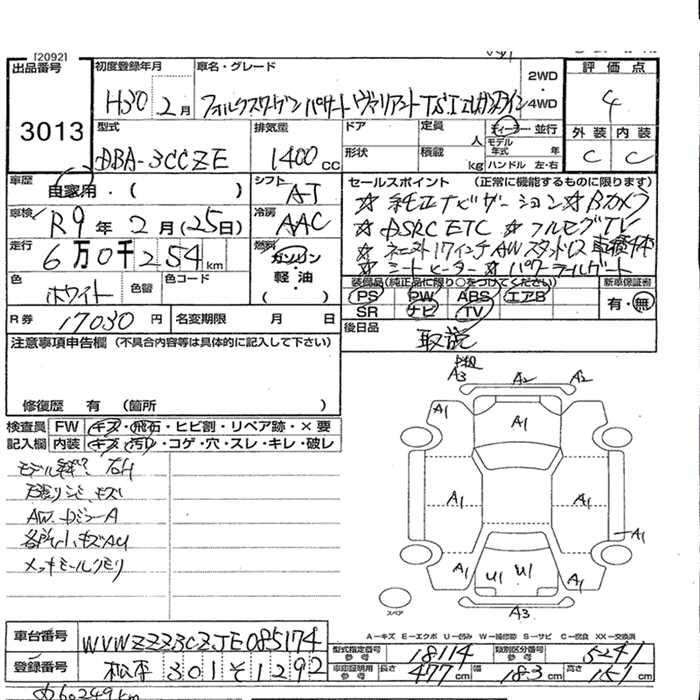 [2092]
出品番号
3013
初度登録年月
H30 2月
車名・グレード
フォルクスワーゲン パサートヴァリアント TSI エレガンスライン
2WD
・
4WD
評価点
4
型式
DBA-3CCZE
排気量
1400 cc
ドア
形状
定員 人
積載 kg
ディーラー・並行
モデル年式 年
ハンドル 左・右
外装 内装
C C
車歴
自家用・( )
シフト
AT
車検
R9年2月(25日)
冷房
AAC
走行
6万0千254km
燃料
ガソリン
・
軽油
( )
色
ホワイト
色替
色コード
R券 17030円
名変期限 月 日
セールスポイント (正常に機能するものに限ります)
☆ 純正ナビゲーション ☆ Bカメラ
☆ DSRC ETC ☆ フルセグTV
☆ 17インチAWスタッドレス
☆ シートヒーター ☆ パワーテールゲート
装備品(純正品に限り○をつけてください) 新車保証書
PS PW ABS エアB
SR ナビ TV
有・無
後日品
取説
注意事項申告欄 (不具合内容等は具体的に記入して下さい)
修復歴 有 (箇所 )
検査員 FW キズ・飛石・ヒビ割・リペア跡・×要
記入欄 内装 キズ・汚れ・コゲ・穴・スレ・キレ・破レ
AW.ドミラーA
各所小キズAU
メッキモールクモリ
A3 A2 A2
A1 A1
A1 A1
A1
A1 U1 U1 A1
A3
スペア
A-キズ E-エクボ U-凹み W-補修跡 S-サビ C-腐食 XX-交換済
車台番号 WVWZZZ3CZJE085174
登録番号 松本 301 そ 1292
型式指定番号 参考 18114
類別区分番号 参考 5241
車印証明用 参考 長さ 477cm 幅 183cm 高さ 151
60249km